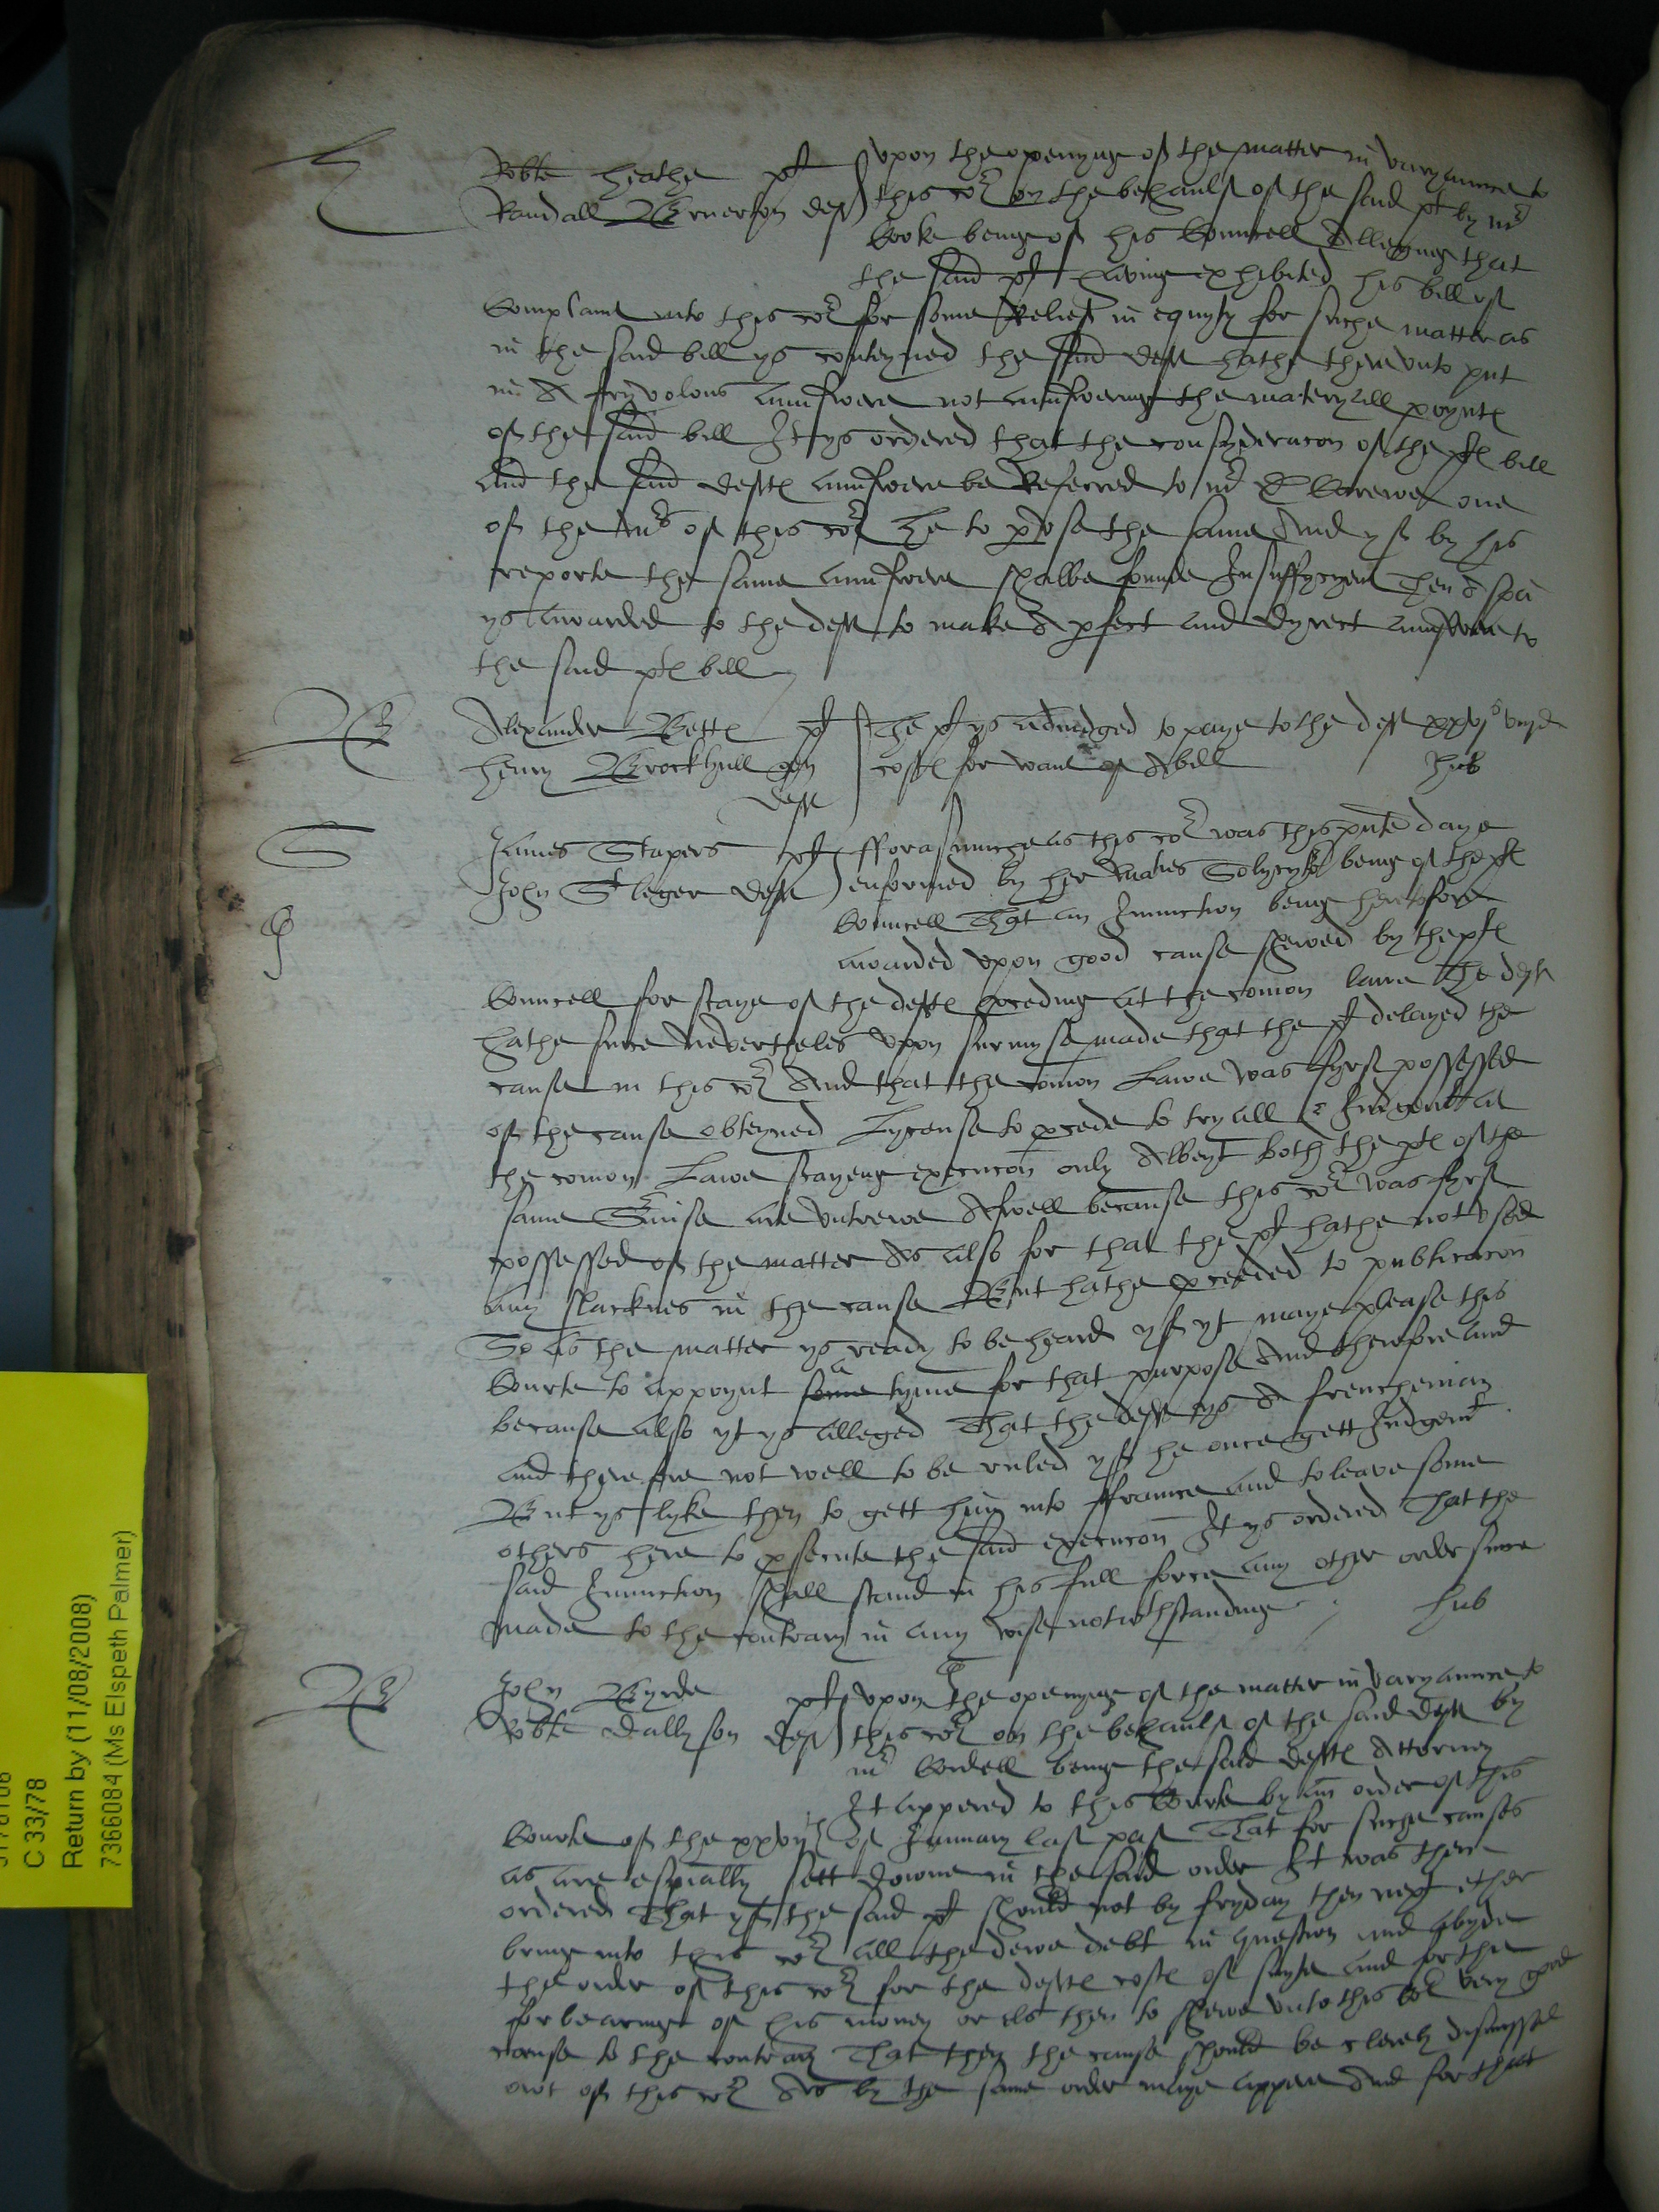 Robte heathe plt
Randall Bruerton deft
upon the openynge of the matter in varyaunce to
this cort on the behaulf of the said plt by mr
Cooke beinge of his Councell Alleginge that
the said plt having exhibited his bill of
Complaint into this cort for some Relief in equyty for suche matter as
in the said bill ys conteyned the said deft hathe there unto put
in A fryvolous aunswere not aunsweringe the materyall poyntes
of the said bill It ys ordered that the consyderacon of the pltes bill
and the said deftes aunswere be Referred to mr D Carewe one
of the mrs of this cort he to pvse the same And yf by his
reporte the same aunswere shalbe founde Insuffycyent Then A spa
ys awarded to the deft to make A pfect and dyrect aunswere to
the said pltes bill
Alexander Bettes plt
henry Brockhull gen
deft
The plt ys adiudged to paye to the deft xxvjs viijd
costes for want of A bill
hub
James Stapers plt
John St leger deft
fforasmuche as this cort was this pnte daye
enformed by her Maties Solycytor being of the pltes
Councell That an Iniunction being heretofore
awarded upon good cause shewed by the pltes
Councell for staye of the deftes pceding at the comon lawe The deft
hathe since Nevertheles upon surmyse made that the plt delayed the
cause in this cort And that the comon Lawe was fyrst possessed
of the cause obteyned Lycense to pcede to tryall & Iudgemt at
the comon Lawe stayeng execucon only Albeyt both the ptes of the
same Surmise are untrewe Aswell because this cort was fyrst
possessed of the matter As also for that the plt hathe not used
any slacknes in the cause But hathe pceeded to publicacon
So as the matter ys ready to be heard yf yt maye please this
Courte to appoynt some a tyme for that purpose And therefore and
because also yt ys alleged That the deft ys A frencheman
and therefore not well to be ruled yf he once gett Iudgemt
But ys lyke then to gett him into ffraunce and to leave some
others here to psecute the said execucon It ys ordered That the
said Iniunction shall stand in his full force any other order since
made to the contrary in any wise notwithstandinge
hub
John Byrde plt
Robte Dallyson deft
upon the openynge of the matter in varyaunce to
this cort on the behaulf of the said deft by
mr Cordell being the said deftes Attorney
It appered to this Courte by an order of this
Courte of the xxvijth of January last past That for suche causes
as are espially sett downe in the said order It was then
ordered That yf the said plt should not by fryday then next ether
bringe into this cort all the dewe debt in question and abyde
the order of this cort for the deftes costes of suyte and for the
forbearinge of his money or els then to shewe unto this cort very good
cause to the contrary That then the cause should be clerely dismyssed
owt of this cort As by the same order maye appere And for that
C 33/78
Return by (11/08/2008)
7366084 (Ms Elspeth Palmer)